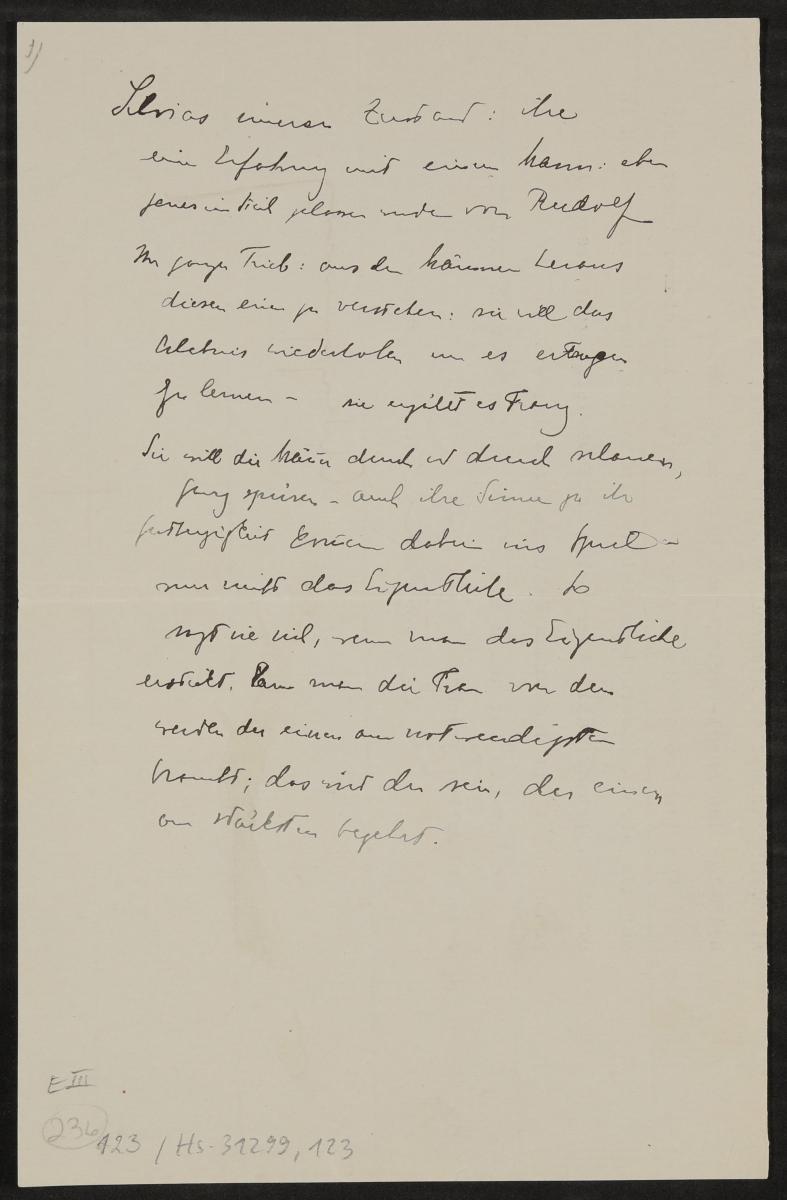 1)
Silvias innerer Zustand: ihre
eine Erfahrung mit einem Mann: eben
jenes im Stich gelassen werden von Rudolf
Ihr ganzer Trieb: aus den Männern heraus
diesen einen zu verstehen: sie will das
Erlebnis wiederholen um es ertragen
zu lernen – sie erzählt es Franz.
Sie will die Männer durch und durch schauen,
ganz spüren – auch ihre Sinne zu ihr
kommen dabei ins Spiel –
nur nicht das Eigentliche. Es
sagt nie viel, wenn man das Eigentliche
erzählt. man die Frau von dem
werden der einen am notwendigsten
braucht; das wird der sein, der einen
am stärksten begehrt.
E III
236
123 / Hs-31299,123